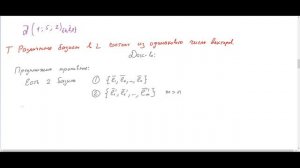 Т Различные базисы в L состоят из одинакового числа векторов
Док-во:
Предположим противное:
Есть 2 базиса ① {e₁, e₂, …, eₙ}
② {e₁', e₂', …, eₘ'} m > n